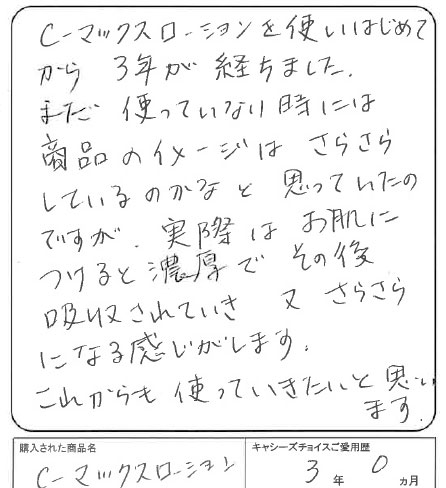 C-マックスローションを使いはじめて
から 3年が 経ちました.
まだ 使っていない時には
商品のイメージは さらさら
しているのかなと 思っていたの
ですが、実際は お肌に
つけると濃厚で その後
吸収されていき 又 さらさら
になる感じがします.
これからも 使っていきたいと思い
ます.
購入された商品名
キャシーズチョイスご愛用歴
C-マックスローション
3年 0ヵ月